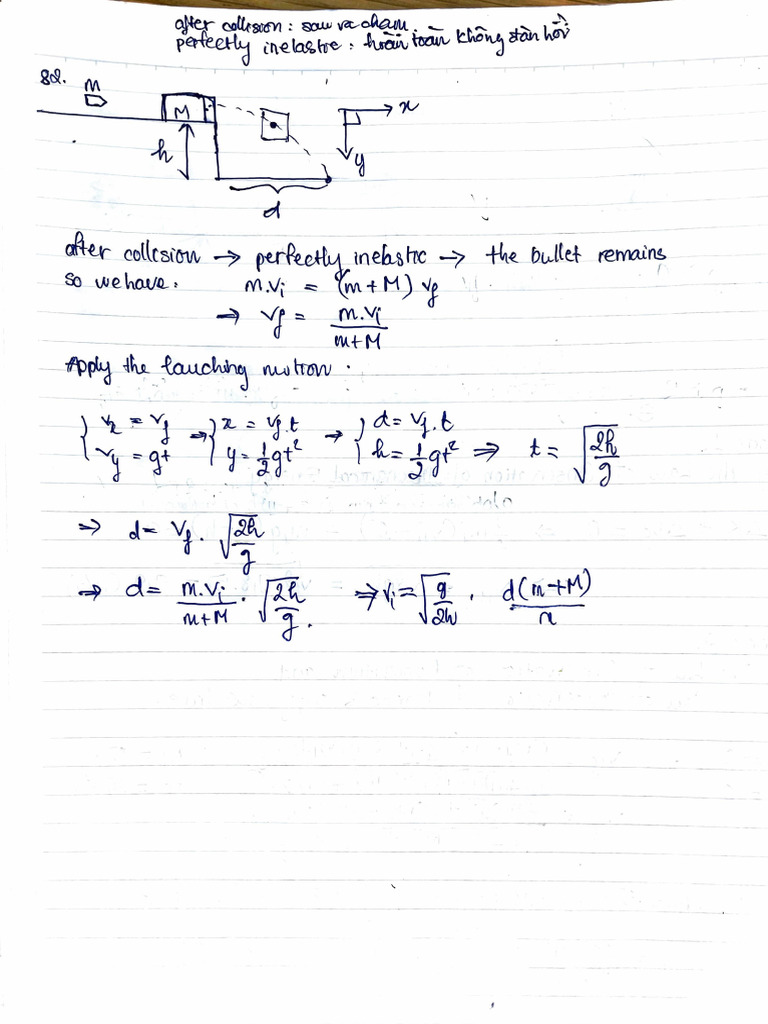 after collision : sau va chạm.
perfectly inelastic : hoàn toàn không đàn hồi
82.
m
M
x
h
y
d
after collision → perfectly inelastic → the bullet remains
so we have: m.vᵢ = (m+M) v_f
→ v_f = m.vᵢ / (m+M)
Apply the lauching motion :
{ vₓ = v_f ; v_y = gt → { x = v_f.t ; y = 1/2 gt² → { d = v_f.t ; h = 1/2 gt² ⇒ t = √(2h/g)
⇒ d = v_f . √(2h/g)
⇒ d = m.vᵢ / (m+M) . √(2h/g). ⇒ vᵢ = √(g/2h) . d(m+M) / m